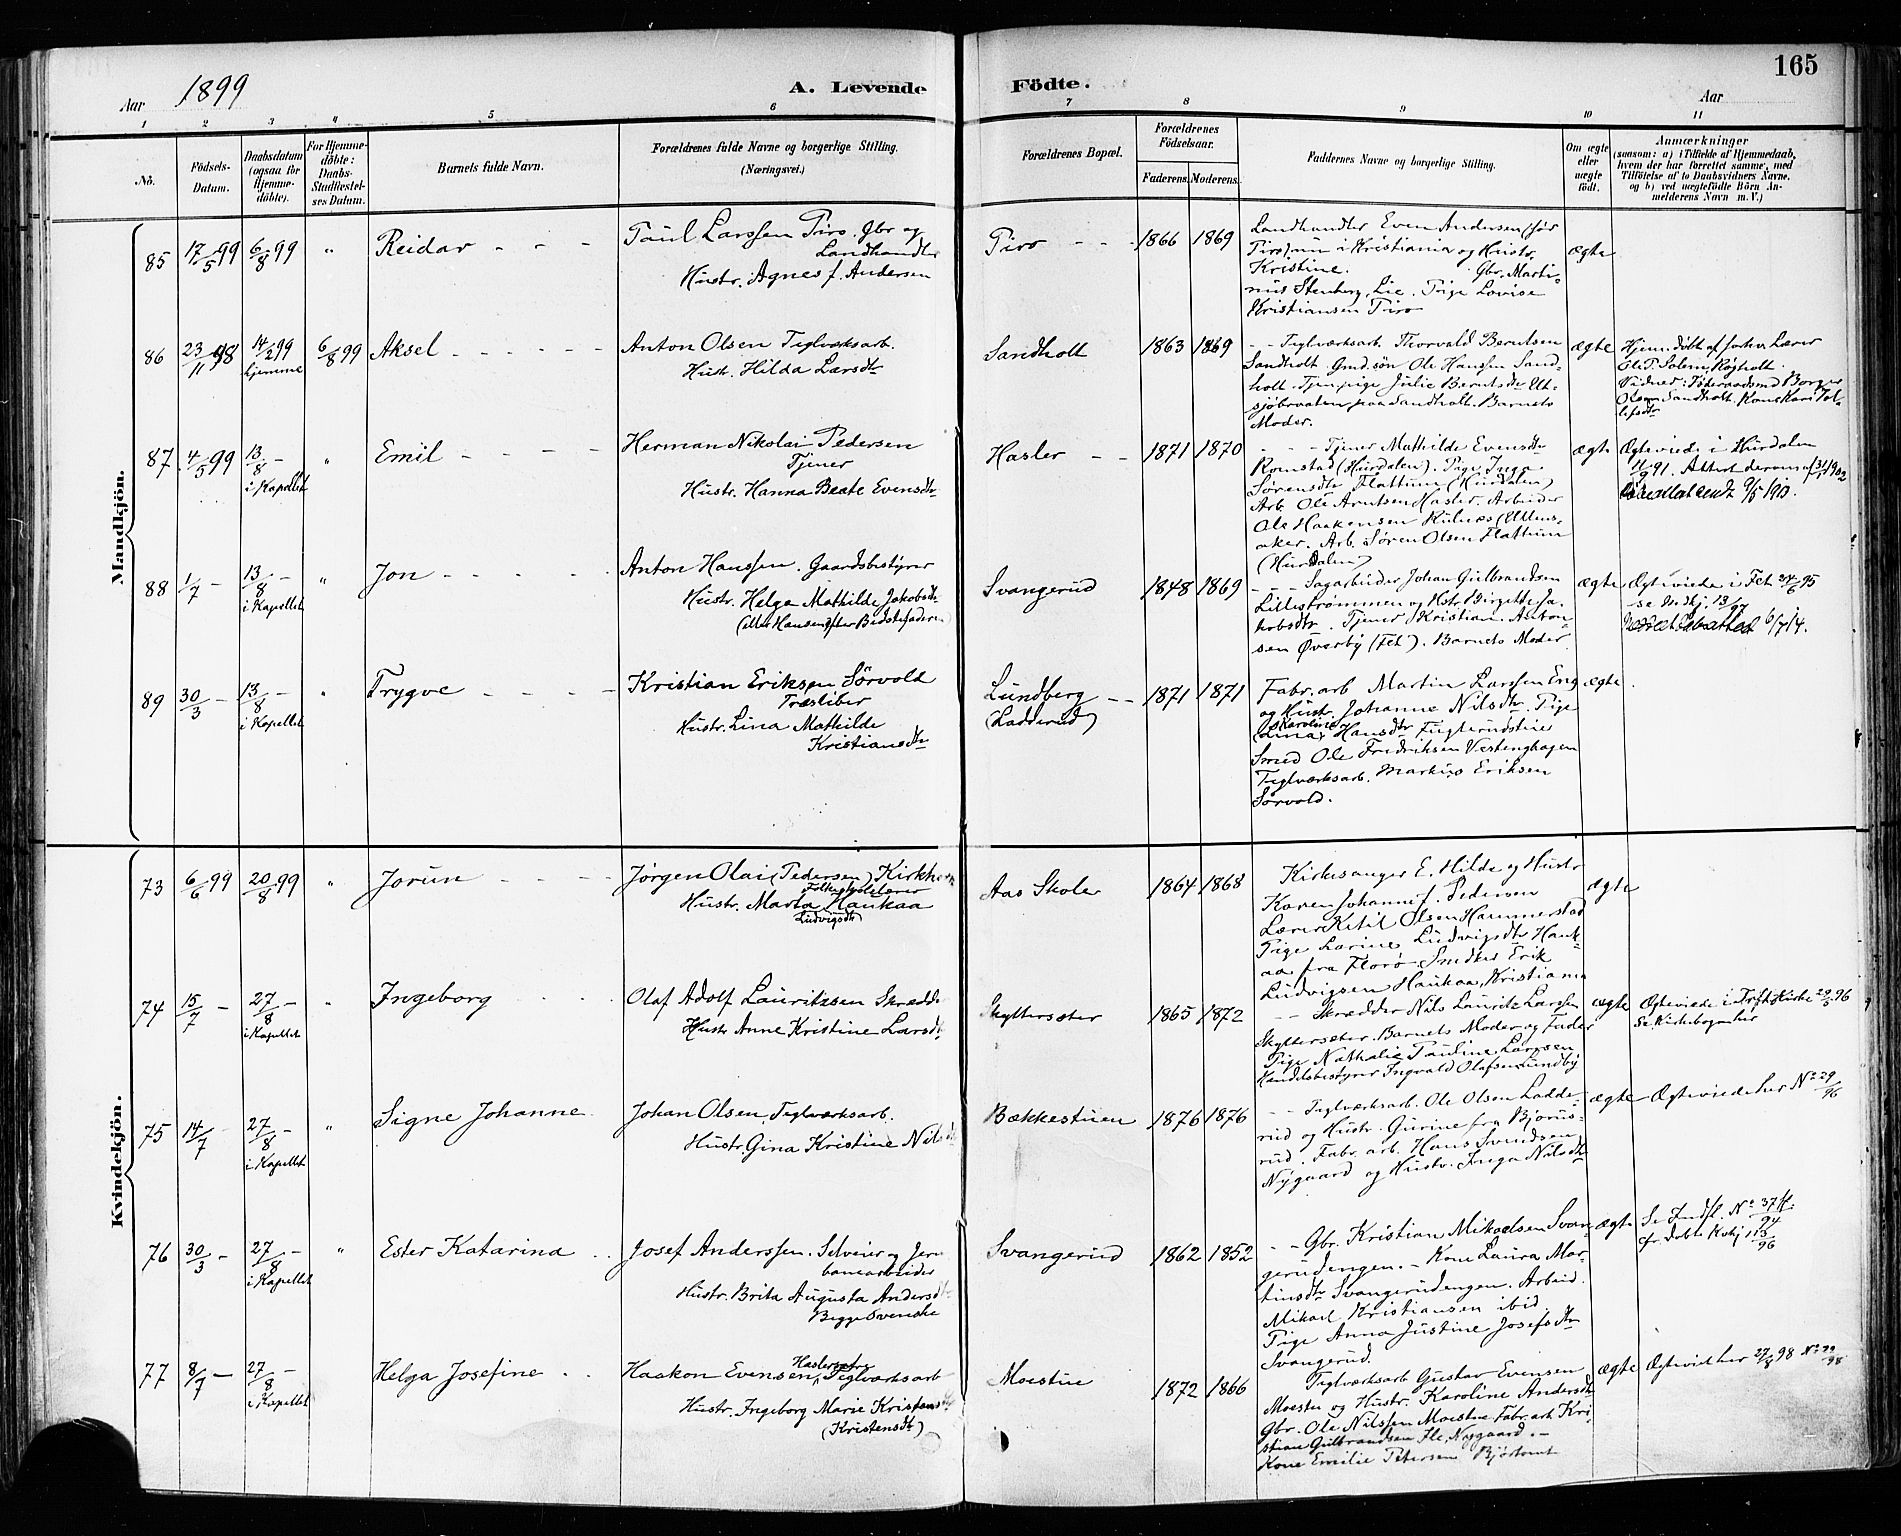 165
Aar 1899
A. Levende Födte.
Aar
1 2 3 4 5 6 7 8 9 10 11
No.
Födsels-Datum.
Daabsdatum (ogsaa for Hjemme-döbte).
For Hjemme-döbte: Daabs-Stadfæstel-ses Datum.
Barnets fulde Navn.
Forældrenes fulde Navne og borgerlige Stilling.
(Næringsvei.)
Forældrenes Bopæl.
Forældrenes Födselsaar.
Faderens. Moderens.
Faddernes Navne og borgerlige Stilling.
Om ægte eller uægte födt.
Anmærkninger
(saasom: a) i Tilfælde af Hjemmedaab,
hvem der har forrettet samme, med
Tilföielse af to Daabsvidners Navne,
og b) ved uægtefödte Börn An-
melderens Navn m. V.)
Mandkjön.
85 17/5 99 6/8 99 " Reidar
Paul Larssen Tiro. Gbr og
Landhandler
Hustr. Agnes f. Andersen
Tiro 1866 1869
Landhandler Even Andersen (før
Tiro) nu i Kristiania og Hustr.
Kristine. Gbr. Marti-
nus Stenberg, Lie. Pige Lovise
Kristiansen Tiro
ægte
86 23/11 98 14/2 99 hjemme 6/8 99 Aksel
Anton Olsen Teglværksarb.
Hustr. Hilda Larsdtr
Sandholt 1863 1869
Teglværksarb. Thorvald Berntsen
Sandholt. Gmd.søn Ole Hanssen Sand-
holt. Tjen.pige Julie Berntsdtr
sjöbraaten paa Sandholt. Barnets
Moder.
ægte
Hjemmdøbt af Lærer
Ole P. Solem, Røgholt.
Vidner: Borger
Olsen Sandholt. Kone Kari Tol-
lefsdtr
87 4/5 99 13/8 - i Kapellet " Emil
Herman Nikolai Pedersen
Tjener
Hustr. Hanna Beate Evensdtr
Hasler 1871 1870
Tjener Mathilde Evensdtr
Romstad (Hurdalen). Pige Inga
Sørensdtr Flattum (Hurdalen)
Arb. Ole Arntsen Hasler. Arbeider
Ole Haakensen Kulnes (Ullens-
aker. Arb. Søren Olsen Flattum
(Hurdalen)
ægte
Ægteviede i Hurdalen
11/9 91. Attest derom af 31/1 1902
88 1/7 - 13/8 - i Kapellet " Jon
Anton Hanssen. Gaardsbestyrer
Hustr. Helga Mathilde Jakobsdtr
(eller Hansen) efter Bedstefaderen
Svangerud 1848 1869
Sagarbeider Johan Gulbrandsen
Lillestrømmen og Hstr. Birgitte Ja-
kobsdtr. Tjener Kristian Anton-
sen Øverby (Fet). Barnets Moder
ægte
Ægteviede i Fet 24/6 95
6/7 14.
89 30/3 - 13/8 - i Kapellet " Trygve
Kristian Eriksen Sörvold
Træsliber
Hustr. Lina Mathilde
Kristiansdtr
Lundberg
(Ladderud)
1871 1871
Fabr. arb Martin Larssen Eng
og Hustr. Johanne Nilsdtr. Pige
Karoline
Hansdtr Fuglerudstuen
Smed Ole Fredriksen Vestenghagen
Teglværksarb. Markus Eriksen
Sörvold.
ægte
Kvindekjön.
73 6/6 99 20/8 99 " Jorun
Jørgen Olai (Pedersen) Kirkhorn
Folkeskolelærer
Hustr. Marta Haukaa
Ludvigsdtr
Aas Skole 1864 1868
Kirkesanger E. Hilde og Hustr
Karen Johanne f. Pedersen
Lærer Ketil Olsen Hammerstad
Pige Larine Ludvigsdtr Hauk-
aa fra Florø. Snedker Erik
Ludvigsen Haukaa, Kristiania
ægte
74 15/7 - 27/8 - i Kapellet " Ingeborg
Olaf Adolf Lauritzsen Skrædder
Hustr Anne Kristine Larsdtr
Skyttersæter 1865 1872
Skrædder Nils Lauritz Larssen
Skyttersæter. Barnets Moder og Fader
Pige Nathalie Pauline Larssen
Handelsbestyrer Ingvald Olafsen Lundby
ægte
Ægteviede i Kirke 29/5 96
Se Kirkebogen her
75 14/7 27/8 - i Kapellet " Signe Johanne
Johan Olsen, Teglværksarb.
Hustr. Gina Kristine Nilsdtr
Bækkestuen 1876 1876
Teglværksarb. Ole Olsen Ladde-
rud og Hustr. Gurine fra Bjørus-
rud. Fabr. arb. Hans Svendsen
Nygaard og Hustr. Inga Nilsdtr
ægte
Ægteviede her No 29/96
76 30/3 - 27/8 - i Kapellet " Ester Katarina
Josef Anderssen. Selveier og Jern
banearbeider
Hustr. Brita Augusta Andersdtr
Begge Svenske
Svangerud 1862 1852
Gbr. Kristian Mikaelsen Svan-
gerudengen. - Kone Laura Mar-
tinsdtr Svangerudengen. Arbeid.
Mikael Kristiansen ibid.
Pige Anna Justine Josefsdtr
Svangerud.
ægte
Se Indfl. No 37 /94
77 8/7 - 27/8 - i Kapellet Helga Josefine
Haakon Evensen, Teglværksarb
Hustr. Ingeborg Marie Kristensdtr
(Kristensdtr)
Moestue 1872 1866
Teglværksarb Gustav Evensen
Moestue og Hustr. Karoline Andersdtr
Gbr. Ole Nilssen Moestue Fabr. arb. Kri-
stian Gulbrandsen Ile, Nygaard. -
Kone Emilie Petersen
ægte
Ægteviet her 27/8 98 No 29/98